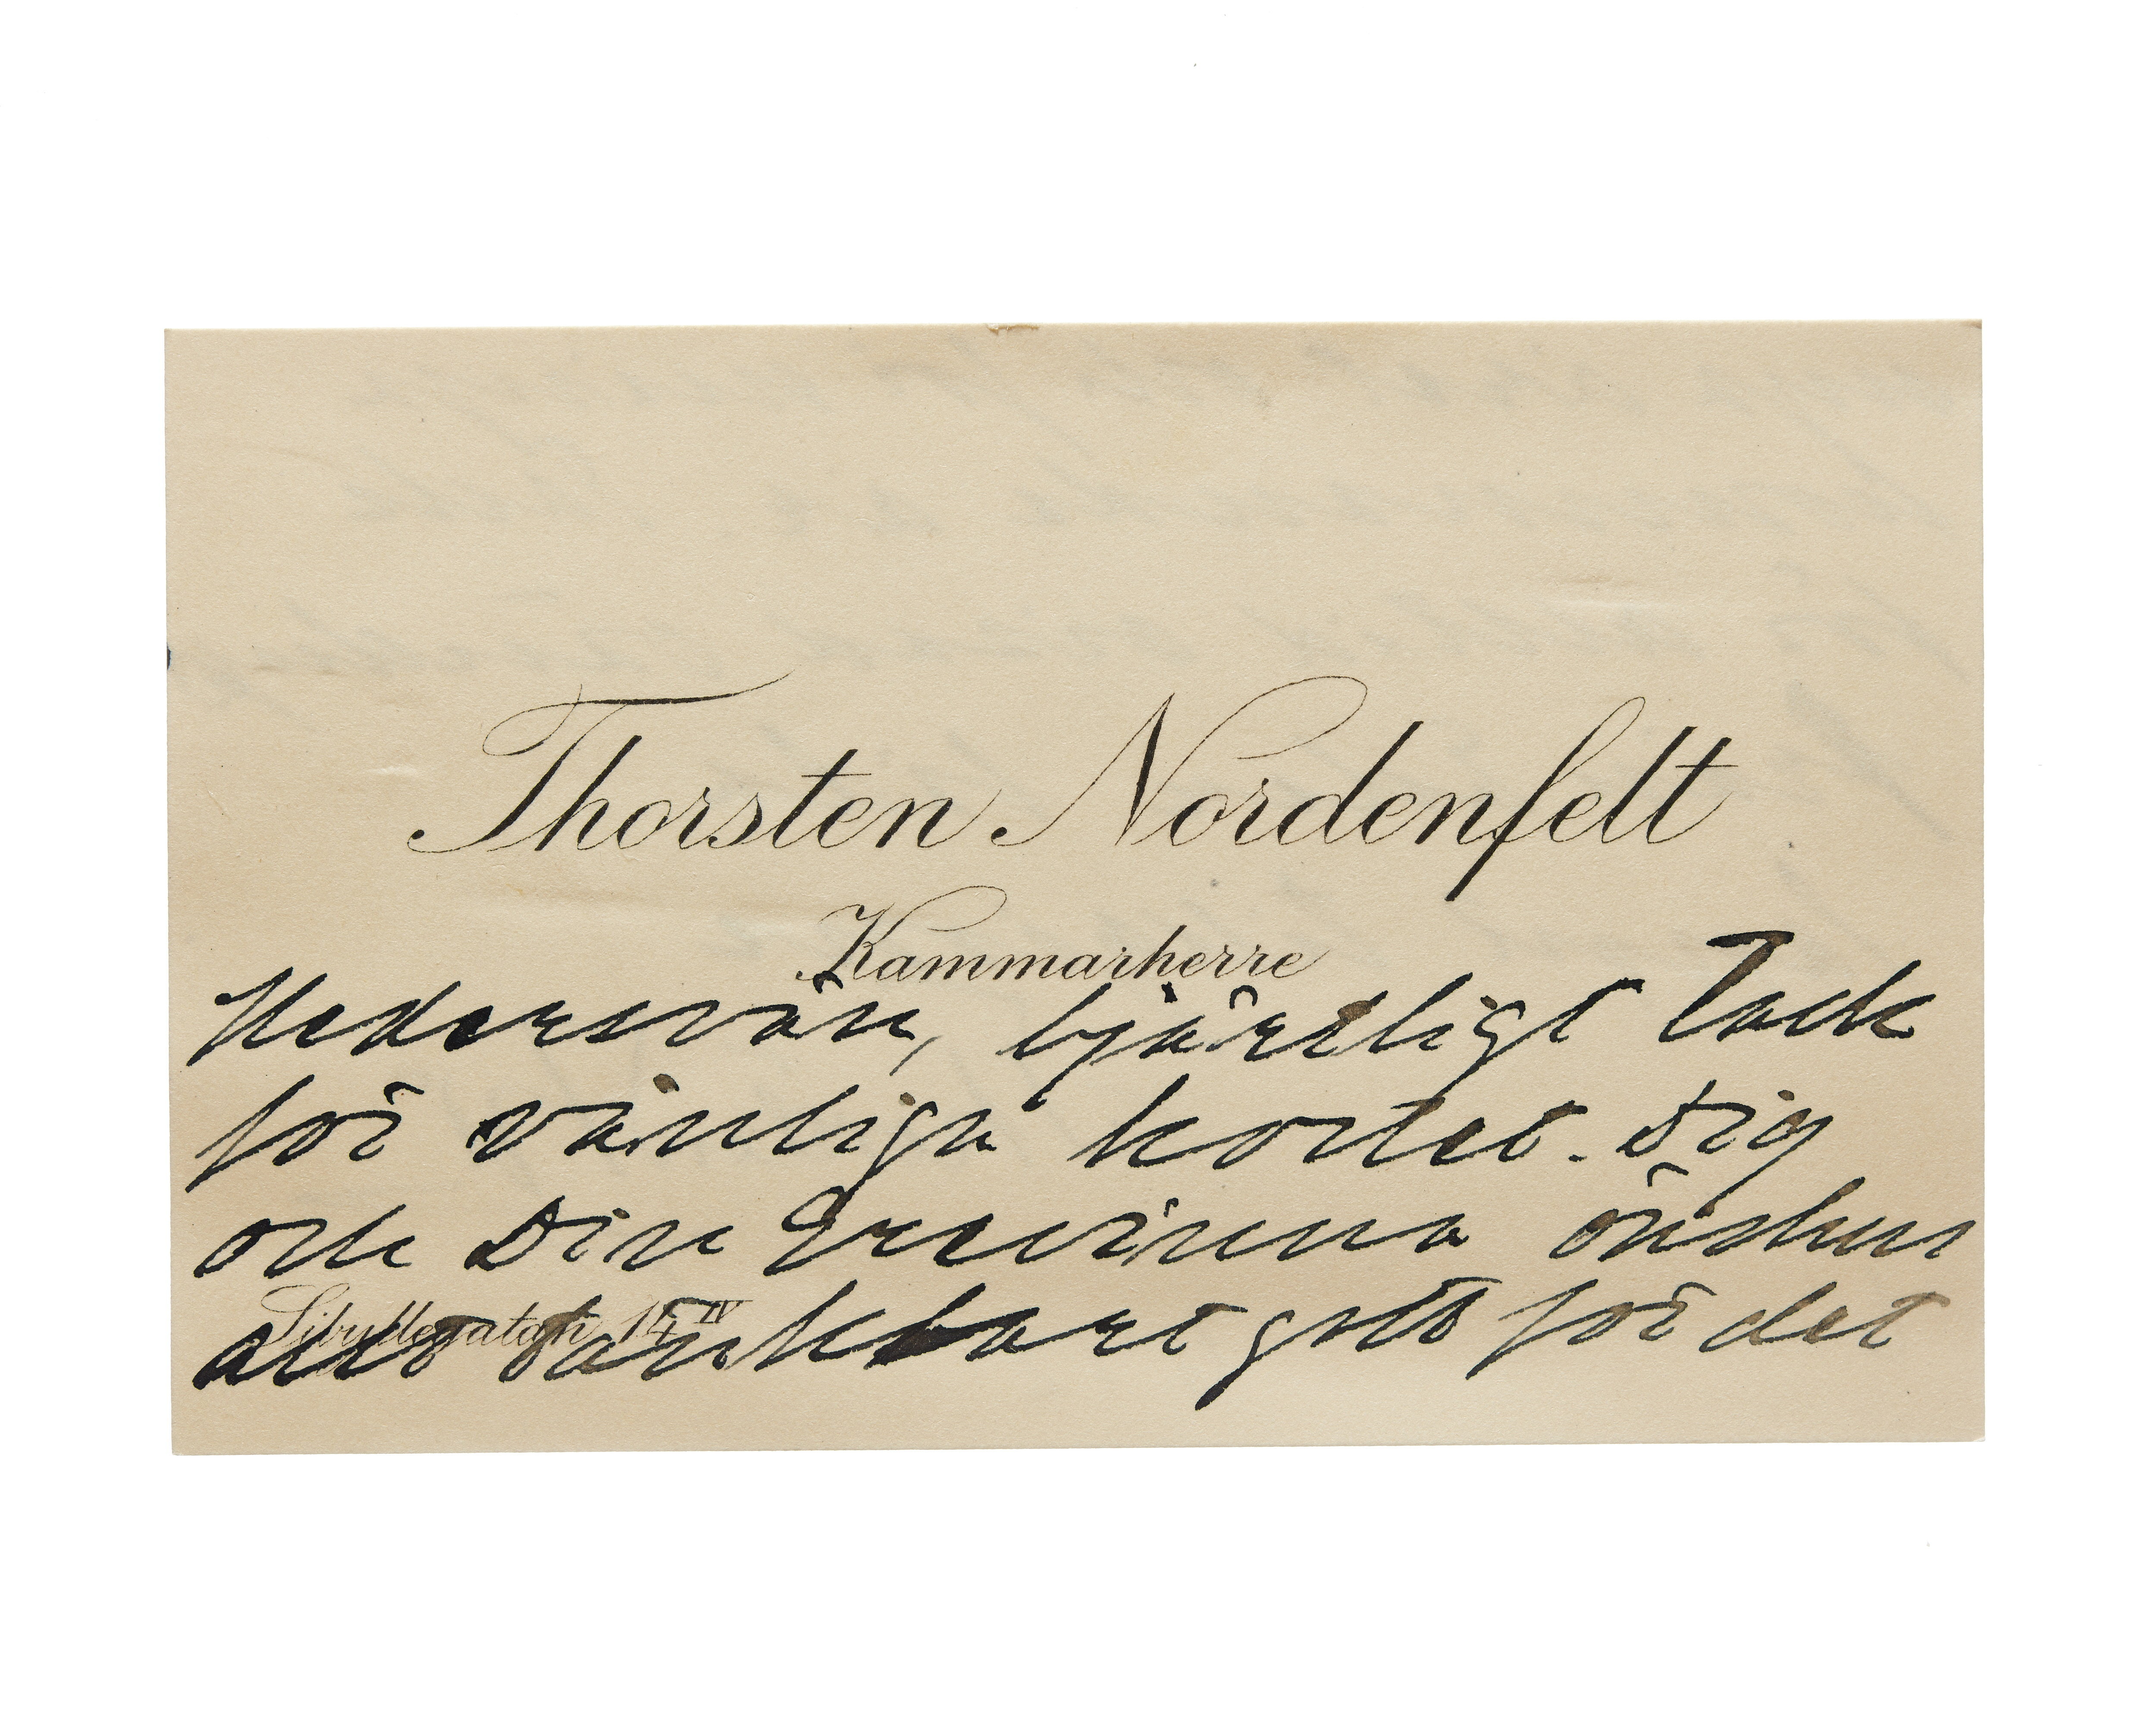 Thorsten Nordenfelt
Kammarherre
Hedersvän, hjärtligt Tack
för vänliga kortet. Dig
och Din Grevinna önskas
Sibyllegatan 14 IV
allt tänkbart godt för det